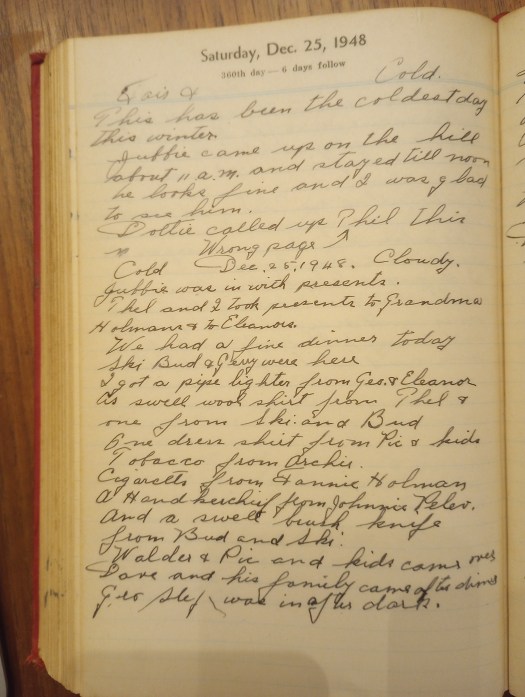 Saturday, Dec. 25, 1948
360th day — 6 days follow
Cold.
&
This has been the coldest day
this winter.
Jubbie came up on the hill
about 11 a.m. and stayed till noon
he looks fine and I was glad
to see him.
Dottie called up Phil this
Wrong page
Cold Dec. 25, 1948. Cloudy.
Jubbie was in with presents.
Phel and I took presents to Grandma
Holmans & to Eleanors.
We had a fine dinner today
Ski Bud & Gerry were here
I got a pipe lighter from Geo. & Eleanor
As swell wool shirt from Phel &
one from Ski and Bud
One dress shirt from Pic & kids
Tobacco from Archie.
Cigaretts from Fannie Holman
A Handkerchief from Johnnie
And a swell brush knife
from Bud and Ski.
Walder & Pic and kids came over
Dave and his family came after dinner
Geo was in after dark.